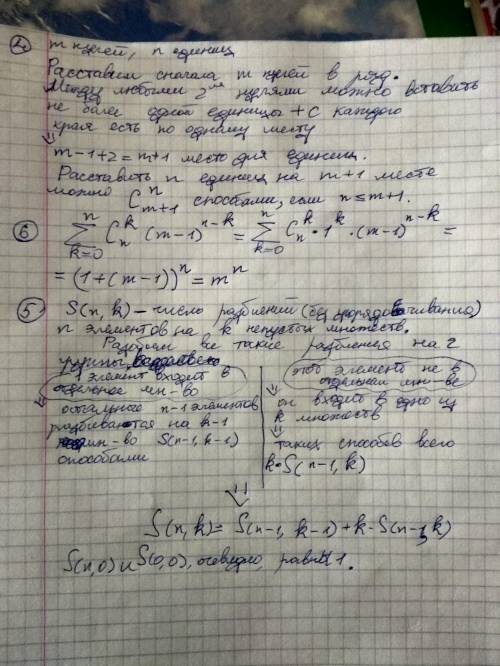 ② m нулей, n единиц
Расставим сначала m нулей в ряд.
Между любыми 2мя нулями можно вставить
не более одной единицы + с каждого
края есть по одному месту
⇓
m-1+2=m+1 место для единиц.
Расставить n единиц на m+1 месте
можно C_{m+1}^n способами, если n≤m+1.
⑥ \sum_{k=0}^{n} C_n^k (m-1)^{n-k} = \sum_{k=0}^{n} C_n^k · 1^k · (m-1)^{n-k} =
= (1+(m-1))^n = m^n
⑤ S(n,k) – число разбиений (без упорядочивания)
n элементов на k непустых множеств.
Разобьём все такие разбиения на 2
группы
1 элемент входит в
отдельное мн-во
⇓
остальные n-1 элементов
разбиваются на k-1
мн-во S(n-1, k-1)
способами
этот элемент не в
отдельном мн-ве
⇓
он входит в одно из
k множеств
⇓
таких способов всего
k·S(n-1, k)
⇓
S(n,k) = S(n-1, k-1) + k·S(n-1, k)
S(n,0) и S(0,0), очевидно, равны 1.